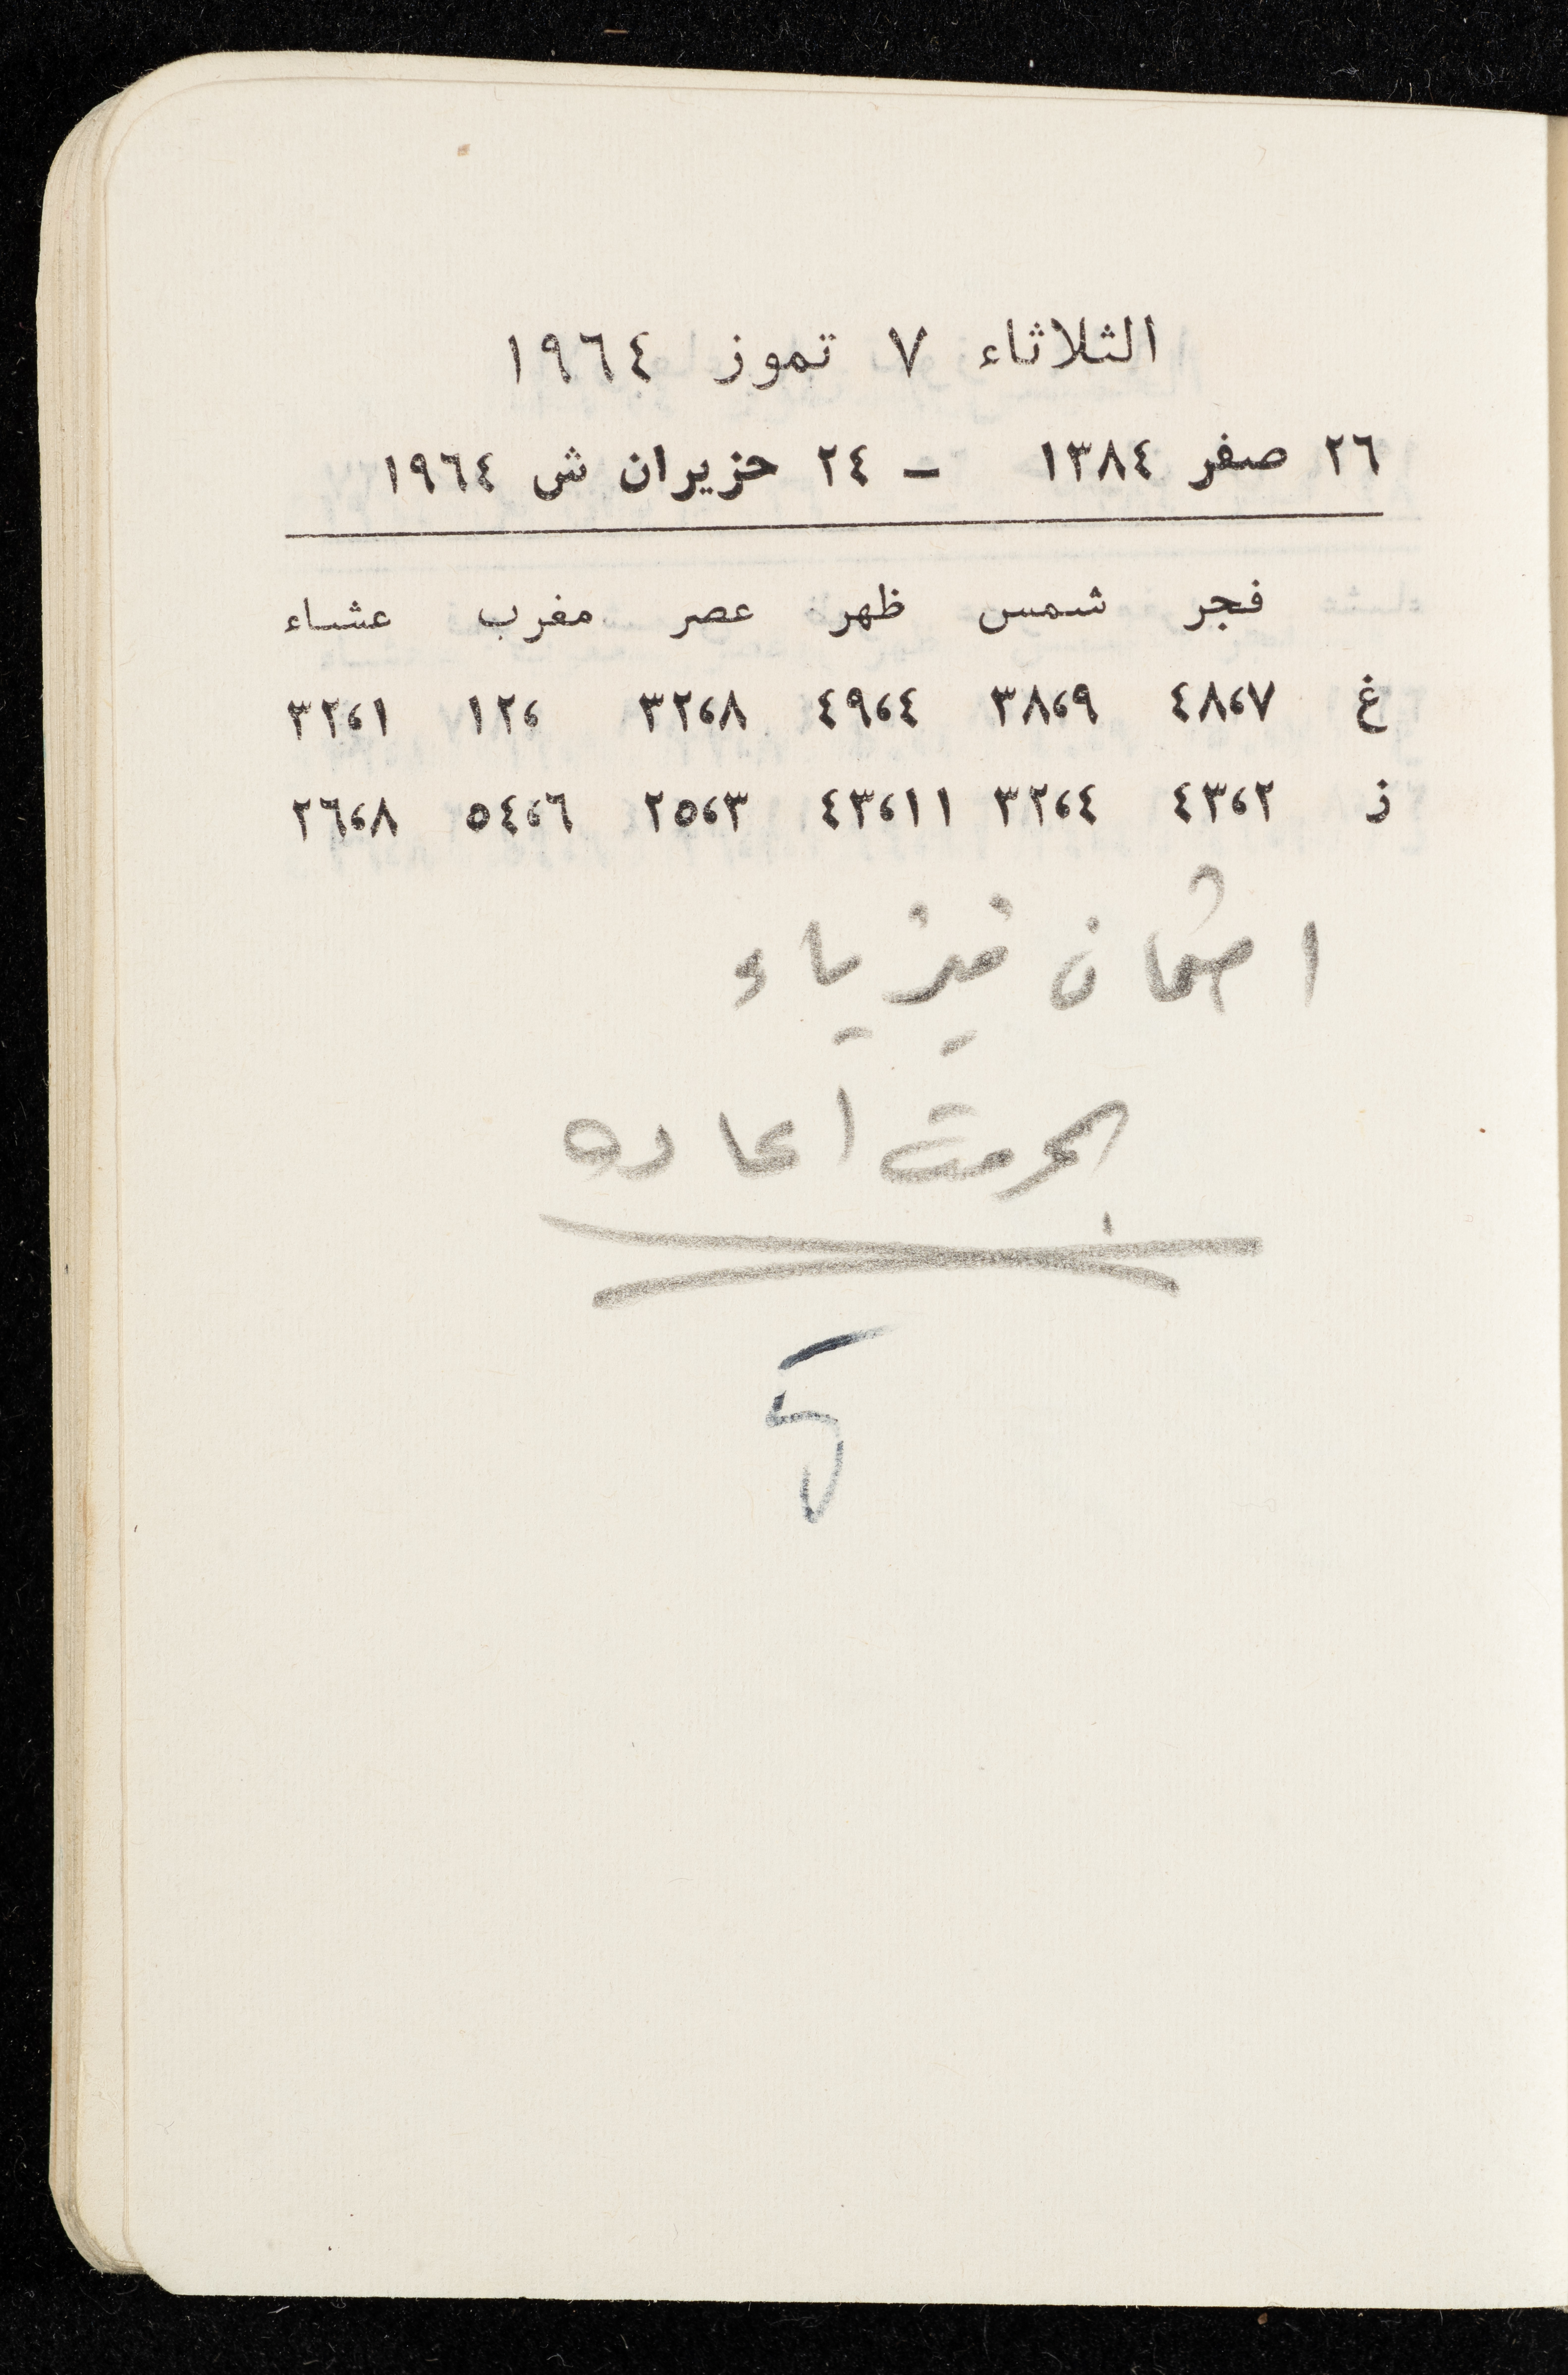 الثلاثاء ٧ تموز ١٩٦٤
٢٦ صفر ١٣٨٤ - ٢٤ حزيران ش ١٩٦٤
فجر شمس ظهر عصر مغرب عشاء
غ ٤٨،٧ ٣٨،٩ ٤٩،٤ ٣٢،٨ ١٢، ٣٢،١
ز ٤٣،٢ ٣٢،٤ ٤٣،١١ ٢٥،٣ ٥٤،٦ ٢٦،٨
امتحان فيزياء
اعاده